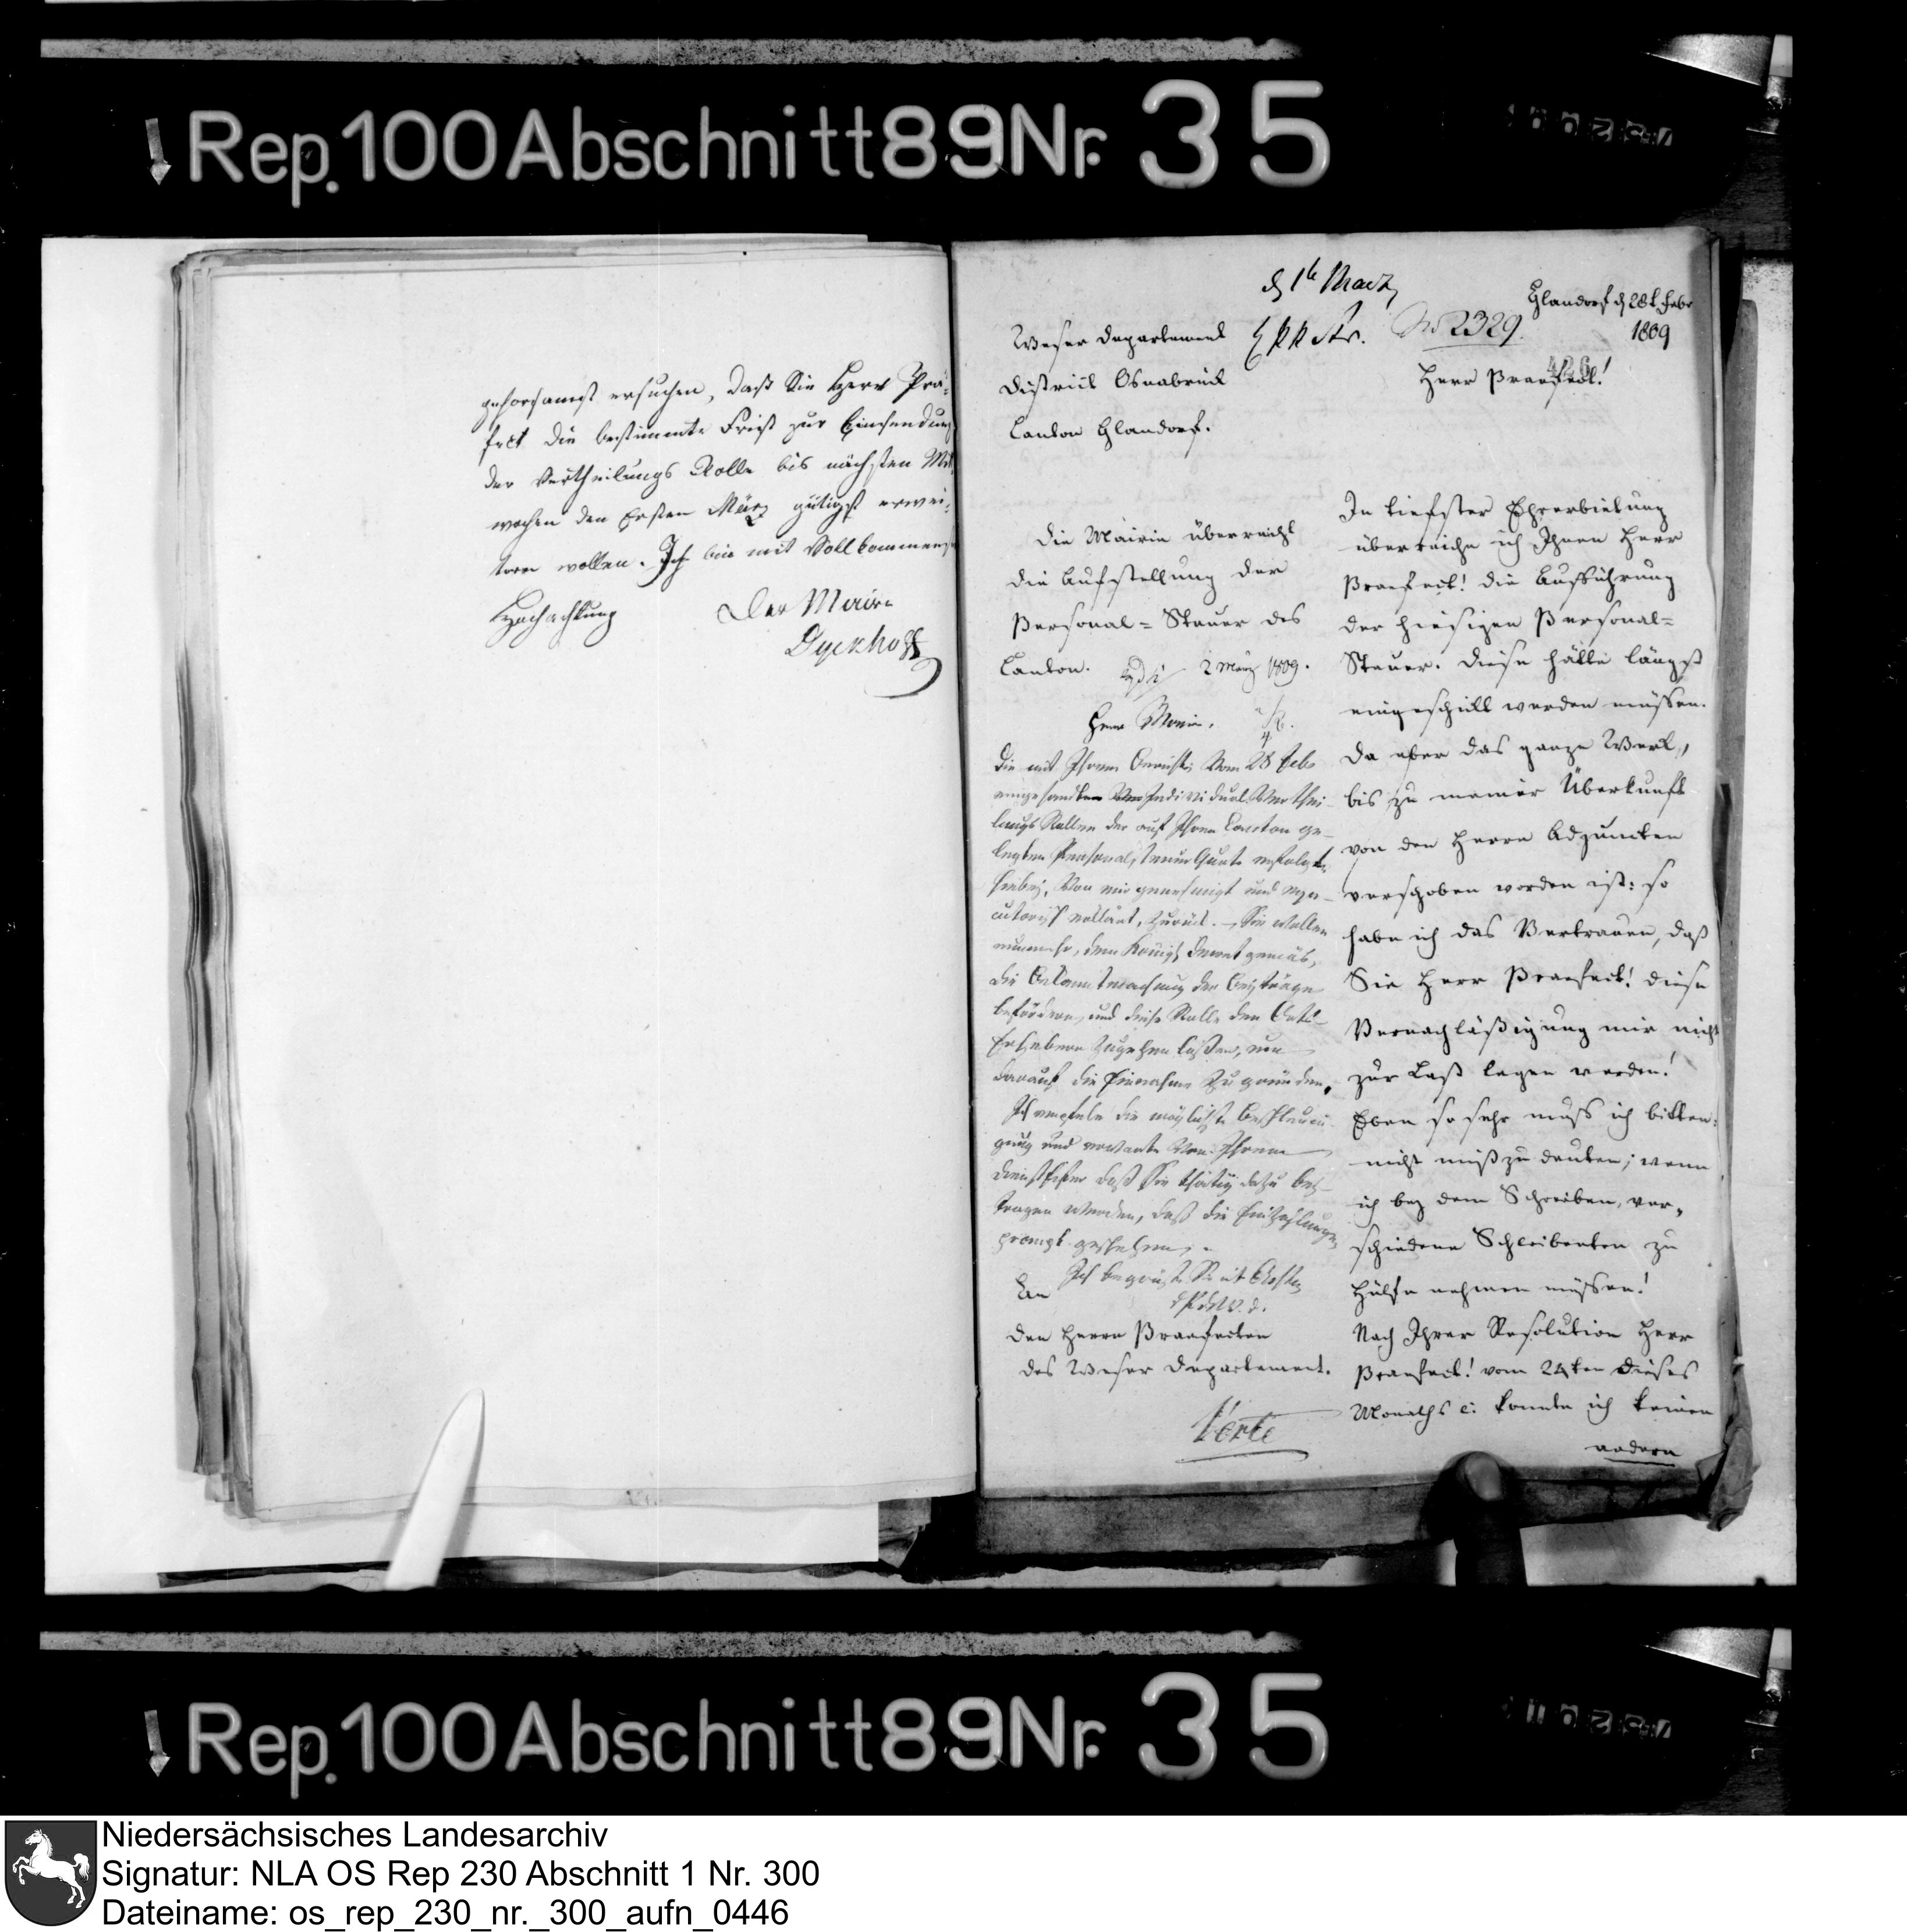 Rep. 100 Abschnitt 89 Nr. 35
gehorsamst ersuchen, daß Sie Herr Prä-
fect die bestimmte Frist zur Einsendung
der Vertheilungs Rolle bis nächsten Mit
wochen den Ersten März gütigst erwei-
tern wollen. Ich bin mit Vollkommenster
Hochachtung
Der Maire
Dyckhoff
d 1t Maerz
Glandorf d 28t Febr
1809
No 2329.
426
Weser Departement
District Osnabrück
Canton Glandorf.
Herr Praefect!
Die Mairie überreicht
die Aufstellung der
Personal-Steuer des
Canton.
2 März 1809.
Herr Maire.
Die mit Ihrem Bericht vom 28 Febr
eingesandten Individual Verthei-
lungs Rollen der auf Ihren Canton ge-
legten Personal Steuer Quote erfolgt
hiebei, von mir genehmigt und exe-
cutorisch erklärt, zurück. – Sie wollen
nunmehr, dem Königl. Decret gemäs,
die Bekanntmachung der Beyträge
befördern, und diese Rolle den
Erhebern zugehen laßen, um
darauf die Einnahme zu gründen.
Ich empfele die möglichste Beschleuni-
gung und erwarte von Ihrem
Diensteifer daß Sie thätig dazu bey-
tragen werden, daß die Einzahlungen
prompt geschehen.
Ich begrüße Sie mit Achtung
d P. d W. D.
An
den Herrn Praefecten
des Weser Departement.
Verte
In tiefster Ehrerbietung
überreiche ich Ihnen Herr
Praefect! die Ausführung
der hiesigen Personal-
Steuer. Diese hätte längst
eingeschickt werden müssen.
Da aber das ganze Werk,
bis zu meiner Überkunft
von den Herrn Adjuncten
verschoben worden ist: so
habe ich das Vertrauen, daß
Sie Herr Praefect! diese
Vernachläßigung mir nicht
zur Last legen werden!
Eben so sehr muss ich bitten:
nicht mißzudeuten; wenn
ich bey dem Schreiben, ver-
schiedene Schreibarten zu
Hülfe nehmen müssen!
Nach Ihrer Resolution Herr
Praefect! vom 24ten dieses
Monaths c: konnte ich keinen
andern
Rep. 100 Abschnitt 89 Nr. 35
Niedersächsisches Landesarchiv
Signatur: NLA OS Rep 230 Abschnitt 1 Nr. 300
Dateiname: os_rep_230_nr._300_aufn_0446